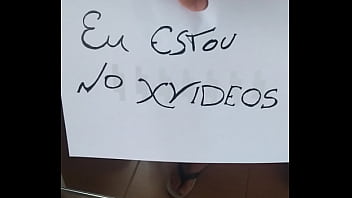 Eu ESTOU
NO XVIDEOS